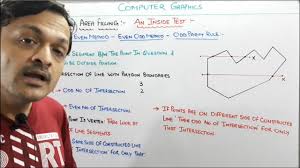 COMPUTER GRAPHICS
AREA FILLING:- AN INSIDE TEST -
EVEN METHOD - EVEN ODD METHOD - ODD PARITY RULE
SEGMENT B/W THE POINT IN QUESTION &
OUTSIDE POLYGON.
SECTION OF LINE WITH POLYGON BOUNDARIES
ODD NO. OF INTERSECTION
EVEN NO. OF INTERSECTION
IS VERTEX THEN LOOK AT
OF LINE SEGMENTS
SAME SIDE OF CONSTRUCTED
INTERSECTION FOR ONLY THAT
IF POINTS ARE ON DIFFERENT SIDE OF CONSTRUCTED
LINE THEN ODD NO. OF INTERSECTION FOR ONLY
THAT INTERSECTION.